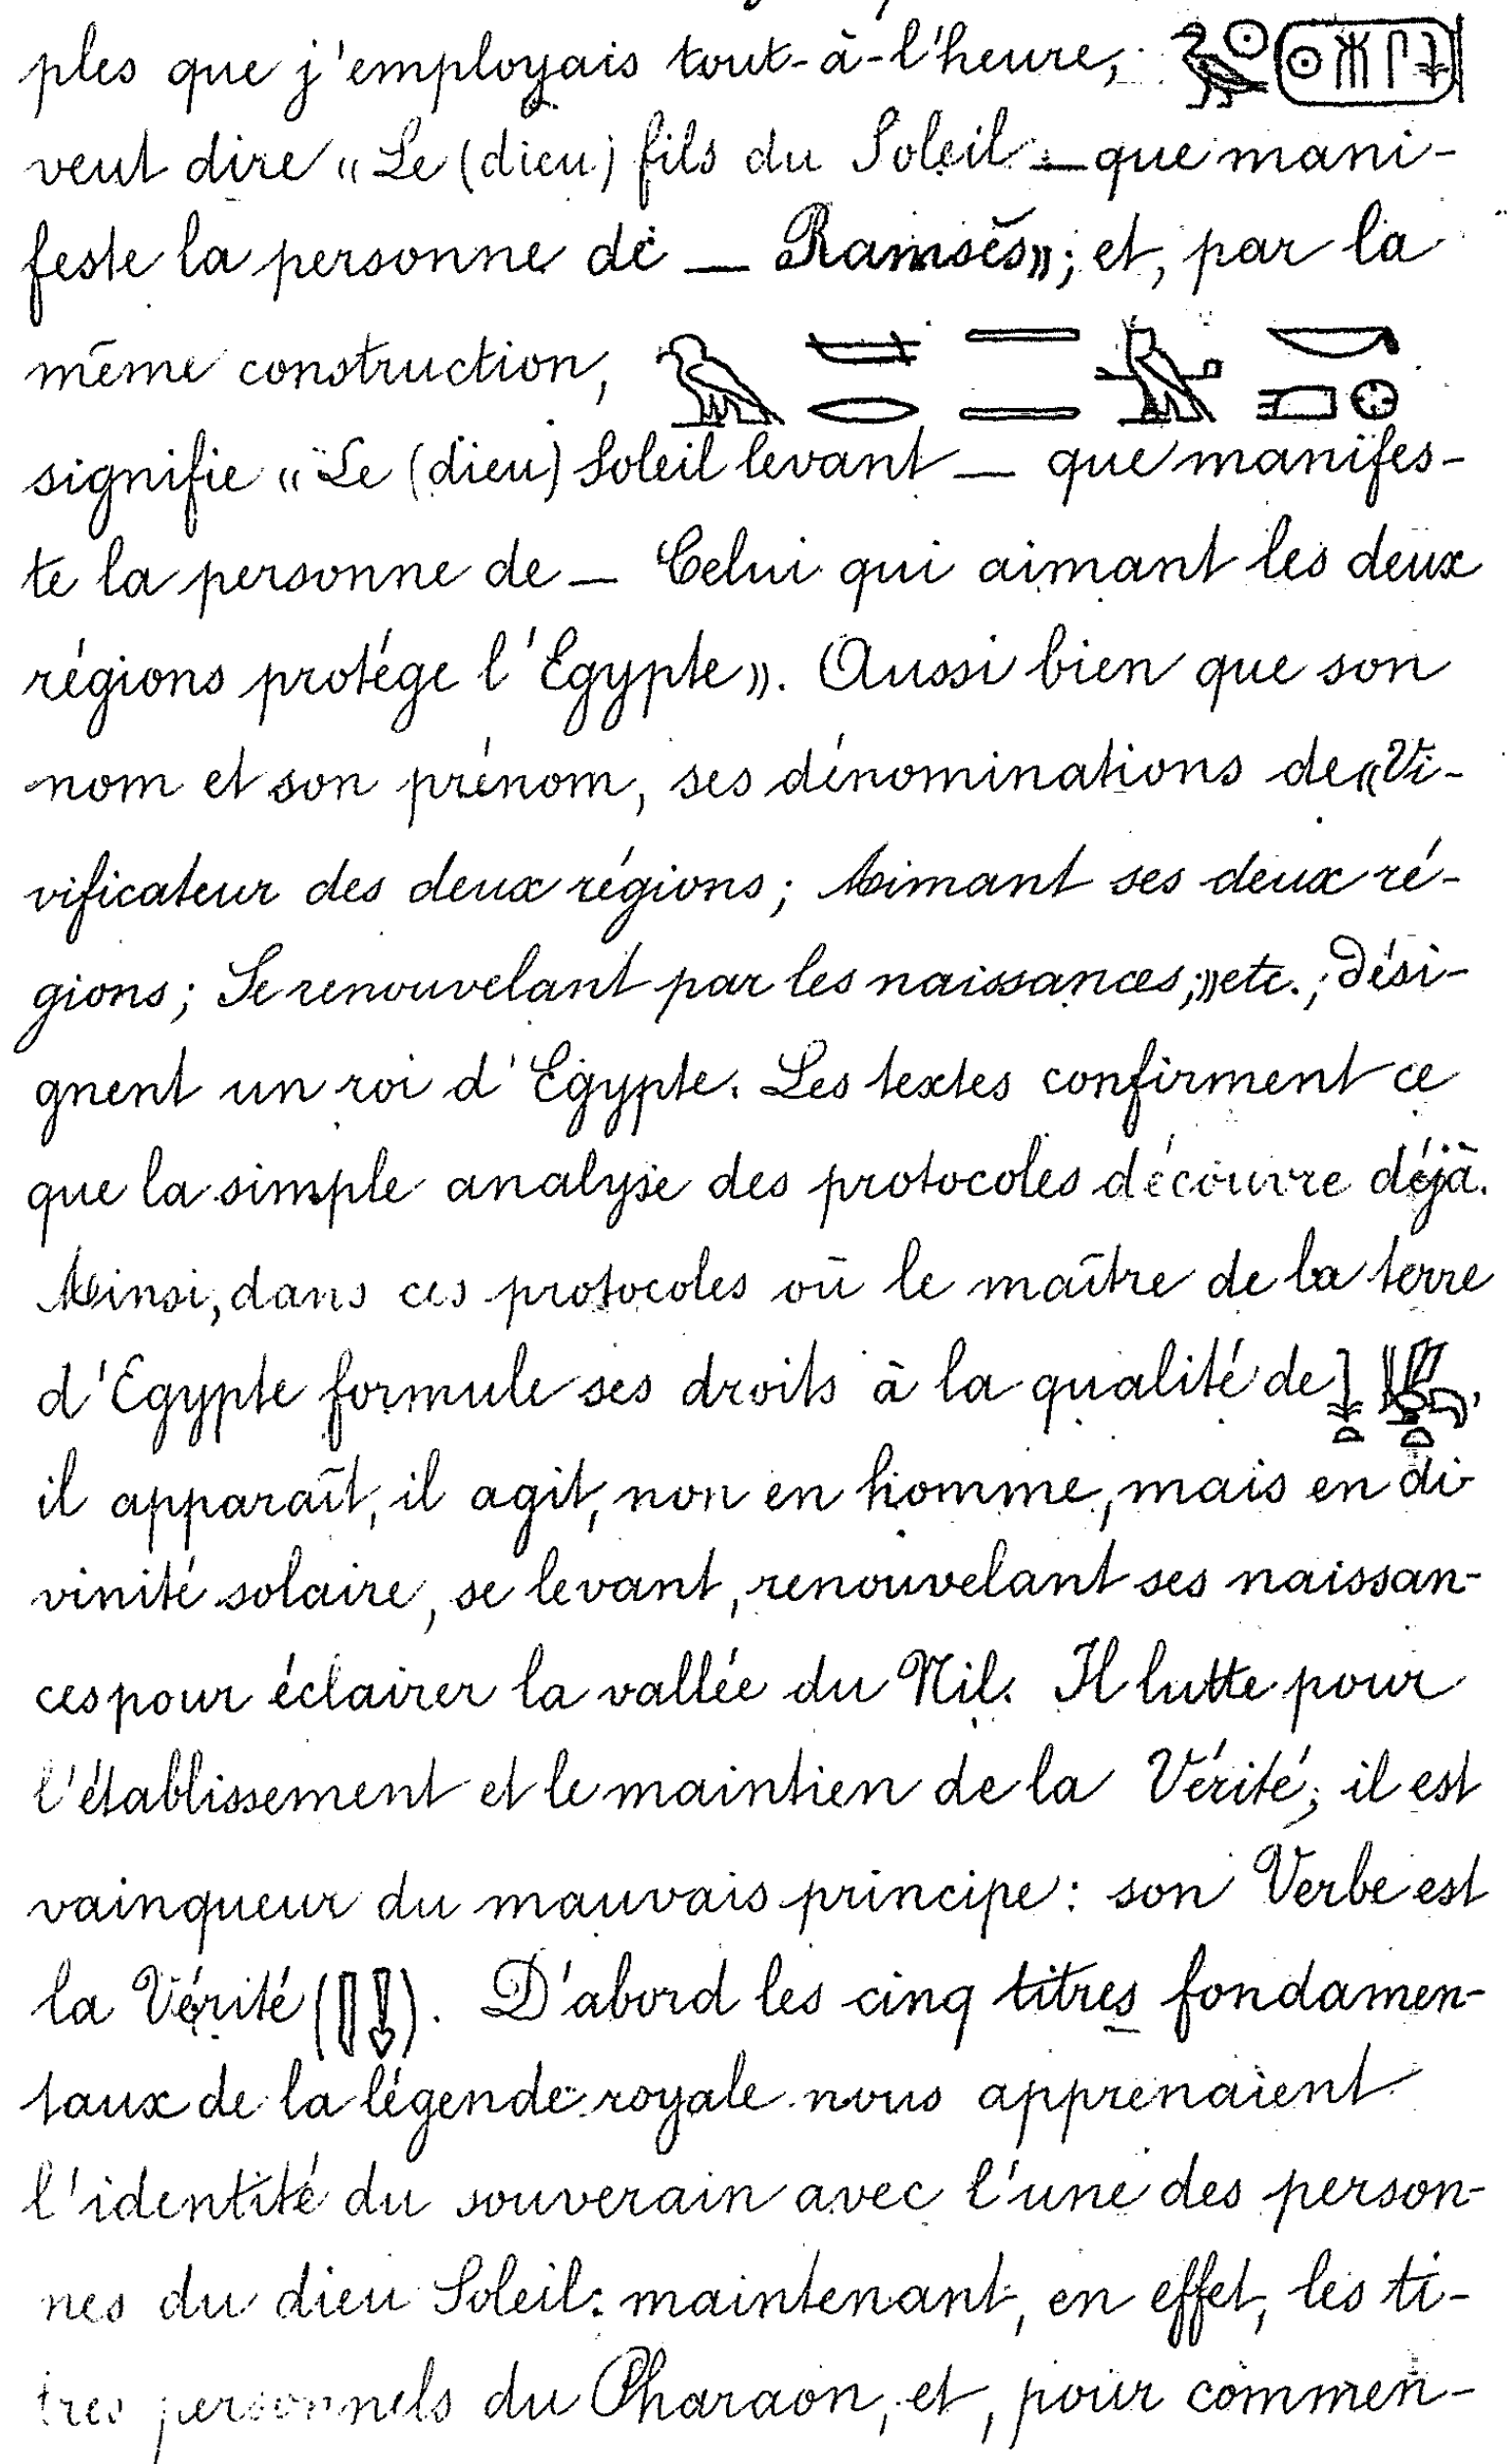 ples que j'employais tout-à-l'heure,
veut dire « Le (dieu) fils du Soleil — que mani-
feste la personne de — Ramsès »; et, par la
même construction,
signifie « Le (dieu) Soleil levant — que manifes-
te la personne de — Celui qui aimant les deux
régions protége l'Egypte ». Aussi bien que son
nom et son prénom, ses dénominations de « Vi-
vificateur des deux régions; Aimant ses deux ré-
gions; Se renouvelant par les naissances; » etc., dési-
gnent un roi d'Egypte. Les textes confirment ce
que la simple analyse des protocoles découvre déjà.
Ainsi, dans ces protocoles où le maître de la terre
d'Egypte formule ses droits à la qualité de ,
il apparaît, il agit, non en homme, mais en di
vinité solaire, se levant, renouvelant ses naissan-
ces pour éclairer la vallée du Nil. Il lutte pour
l'établissement et le maintien de la Vérité; il est
vainqueur du mauvais principe: son Verbe est
la Vérité ( ). D'abord les cinq titres fondamen-
taux de la légende royale nous apprenaient
l'identité du souverain avec l'une des person-
nes du dieu Soleil: maintenant, en effet, les ti-
tres personnels du Pharaon, et, pour commen-